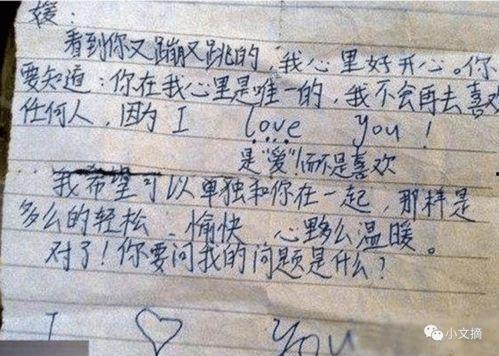 媛：
看到你又蹦又跳的，我心里好开心。你
要知道：你在我心里是唯一的，我不会再去喜欢
任何人，因为 I love you！
是“爱”而不是喜欢
我希望可以单独和你在一起，那样是
多么的轻松、愉快 心多么温暖。
对了！你要问我的问题是什么？
I ♡ You
小文摘